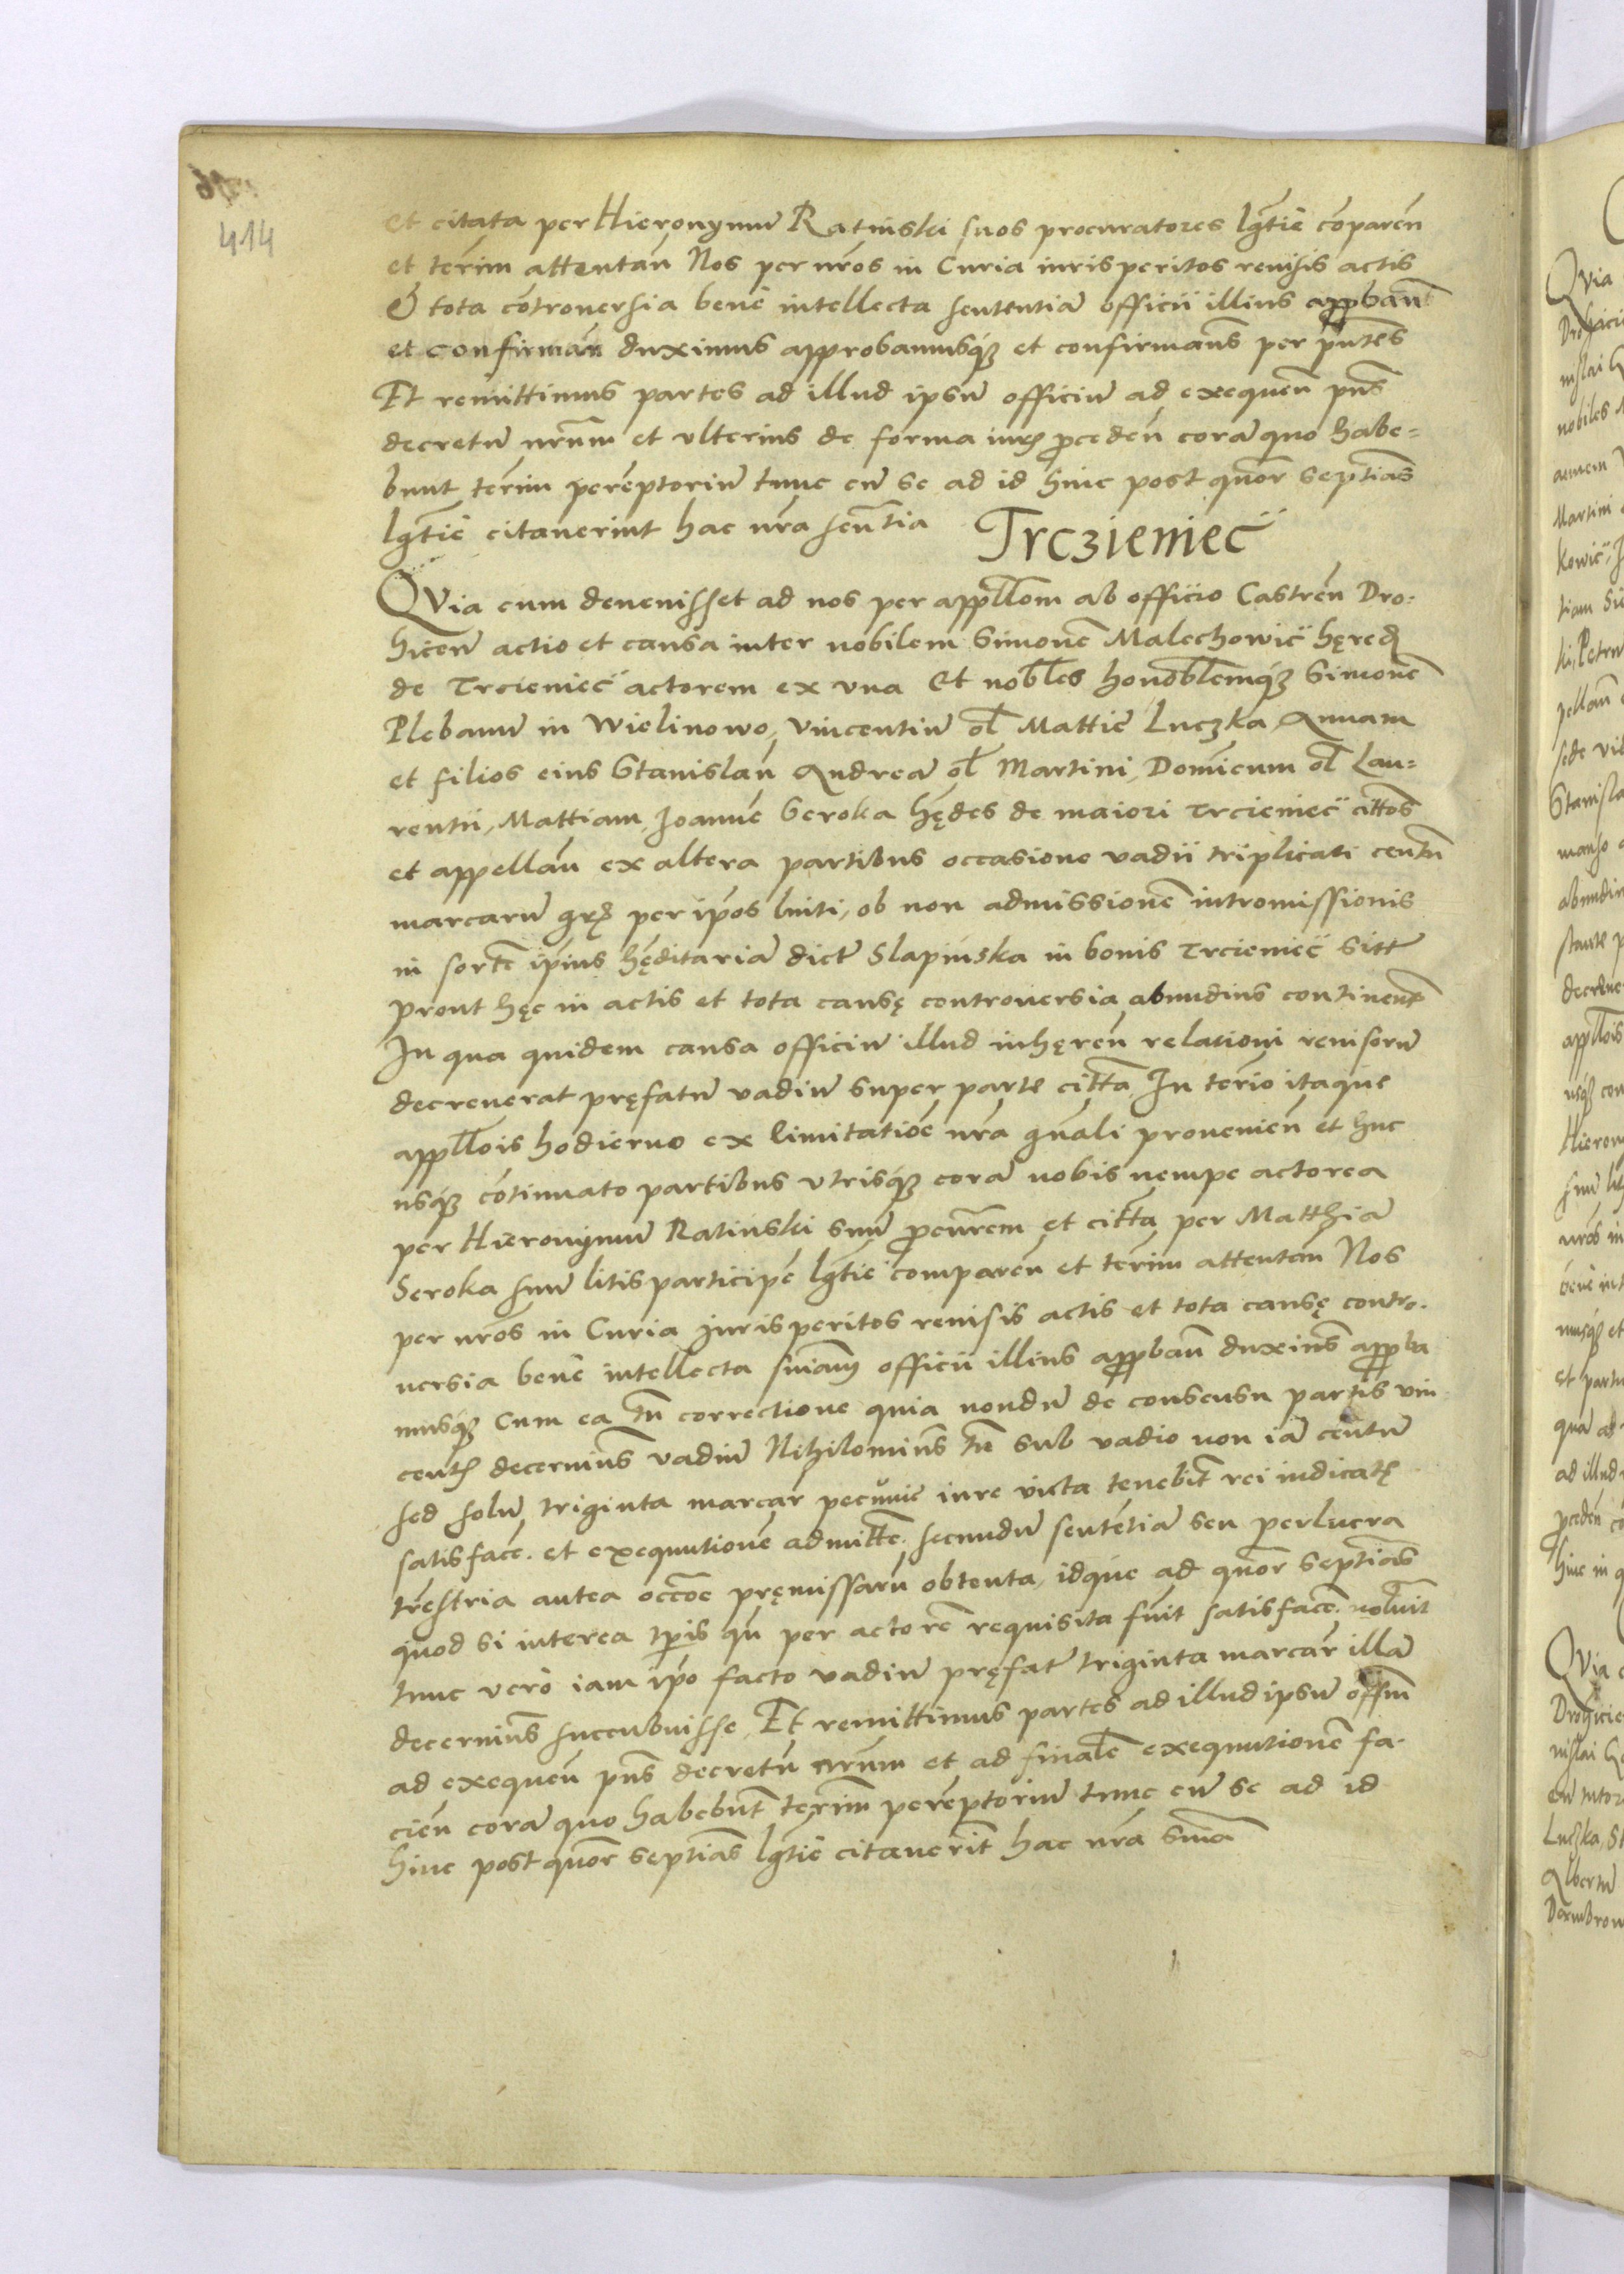 414
et citata per Hieronymū Ratinski suos procuratores lg̃tīe cōparen̄
et term̄ attentan̄ Nos per nr̄os in Curia iuris peritos reuisis actis
& tota cōtrouersia bene intellecta sententiā officii illius approban̄
et confirman̄ duximus approbamusq́ꝫ et confirmam̄s per pn̄tes
Et remittimus partes ad illud ipsū officiū ad exequen̄ pn̄s
decretū nr̄um et vlterius de forma iuris ꝓceden̄ corā quo habe=
bunt term̄ peremptoriū tunc cū se ad id hinc post quor̄ septiās
lg̃tīe citauerint hac nr̄a sen̄tia Trczienieć
QVia cum deuenisset ad nos per appll̄om ab officio Castren̄ Dro:
hicen̄ actio et causa inter nobilem Simonē Malechowic̈ hęred
de Trcieniec̈ actorem ex vna Et nobl̄es honobl̄emq́ꝫ Simonē
Plebanū in Wielinowo, Vincentiū ol̄ Mattiē Luczka Annam
et filios eius Stanislaū Andreā ol̄ Martini, Domīcum ol̄ Lau=
rentii, Mattiam, Joannē Seroka hędes de maiori Trcieniec̈ cittos
et appellan̄ ex altera partibus occasione vadii triplicati centū
marcarū grę per ip̄os luiti, ob non admissionē intromissionis
in sortē ip̄ius hęditariā dict̄ Slapinska in bonis Trcieniec̈ sitt̄
prout hęc in actis et tota causę controuersia abundius continent̄
In qua quidem causa officiū illud inhęren̄ relationi reuisorū
decreuerat pręfatū vadiū super parte citt̄a, In term̄o itaque
appll̄ois hodierno ex limitatiōe nr̄a gn̄ali prouenien̄ et huc
usq́ꝫ cōtinuato partibus vtrisq́ꝫ corā nobis nempe actorea
per Hieronymū Ratinski suū ꝓcur̄em et citt̄a per Matthiā
Seroka suū litis participē lg̃tīe comparen̄ et term̄ attentan̄ Nos
per nr̄os in Curia iuris peritos reuisis actis et tota causę contro.
uersia bene intellecta sn̄iam officii illius approban̄ duxim̄s approba
musq́ꝫ Cum ea tn̄ correctione quia nondū de consensu partis vin
cent̄ decernim̄s vadiū Nihilomin̄s tn̄ sub vadio non iā centū
sed solū triginta marcar̄ pecunie iure victa tenebit̄ rei iudicatę
satisface. et exequutionē admitte. secundū sentētiā seu perlucra
tr̄estria antea occōe pręmissarū obtenta, idque ad quor̄ septiās
quod si interea tp̄is qn̄ per actorē requisita fuit satisface. noluit
tunc vero iam ip̄o facto vadiū pręfat̄ triginta marcar̄ illā
decernim̄s succubuisse, Et remittimus partes ad illud ipsū offm̄
ad exequen̄ pn̄s decretū nr̄um et ad finalē exequutionē fa.
cien̄ corā quo habebūt term̄ peremptoriū tunc cū se ad id
hinc post quor̄ septiās lg̃tīe citauerīt hac nr̄a sn̄ia